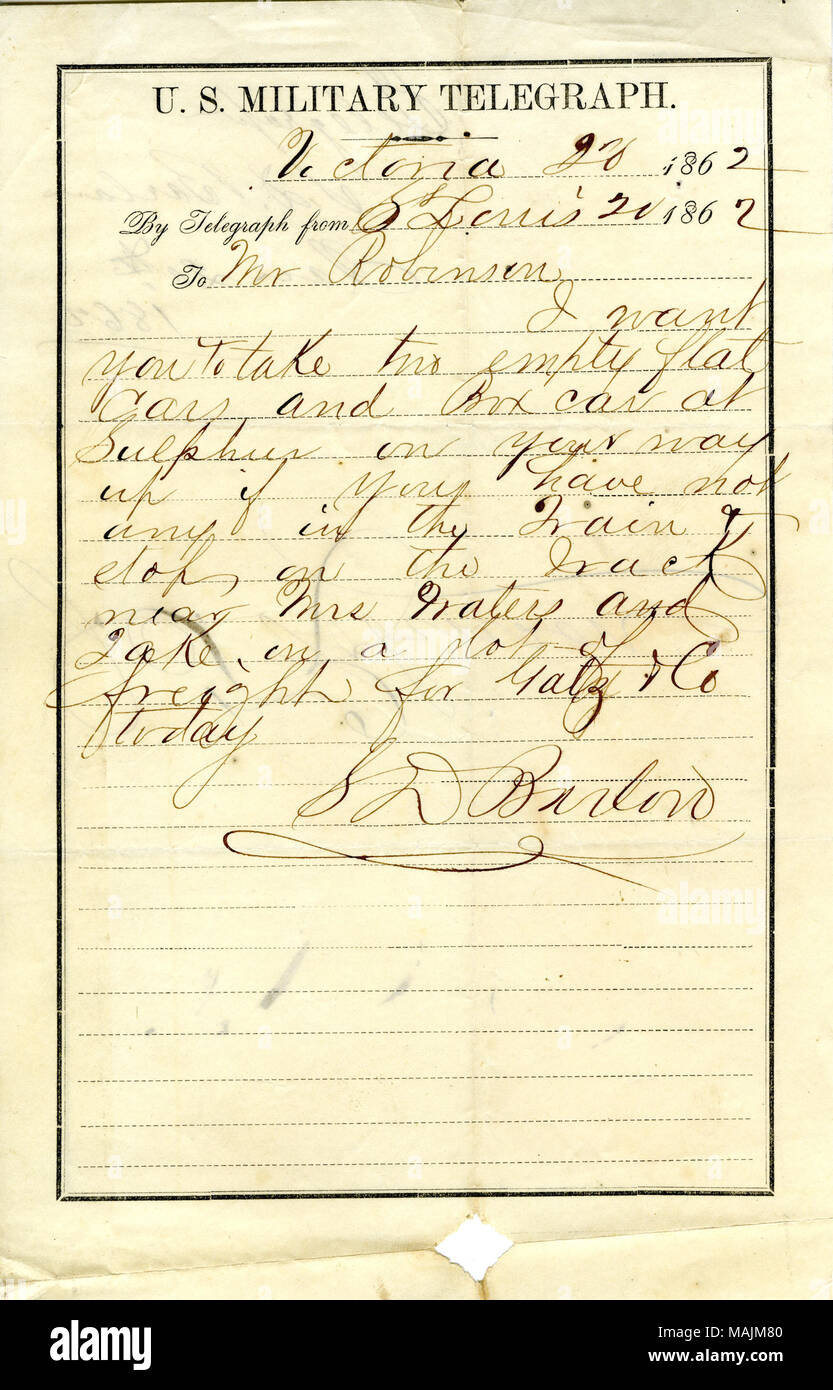 U. S. MILITARY TELEGRAPH.
Victoria 20 1862
By Telegraph from St Louis 20 1862
To Mr Robinson
I want
you to take two empty flat
Cars and Box car at
Sulphur on your way
up if you have not
any in the Train &
stop on the Track
near Mrs and
Take on a lot of
freight for & Co
today
S D Barlow
alamy
Image ID: MAJM80
www.alamy.com